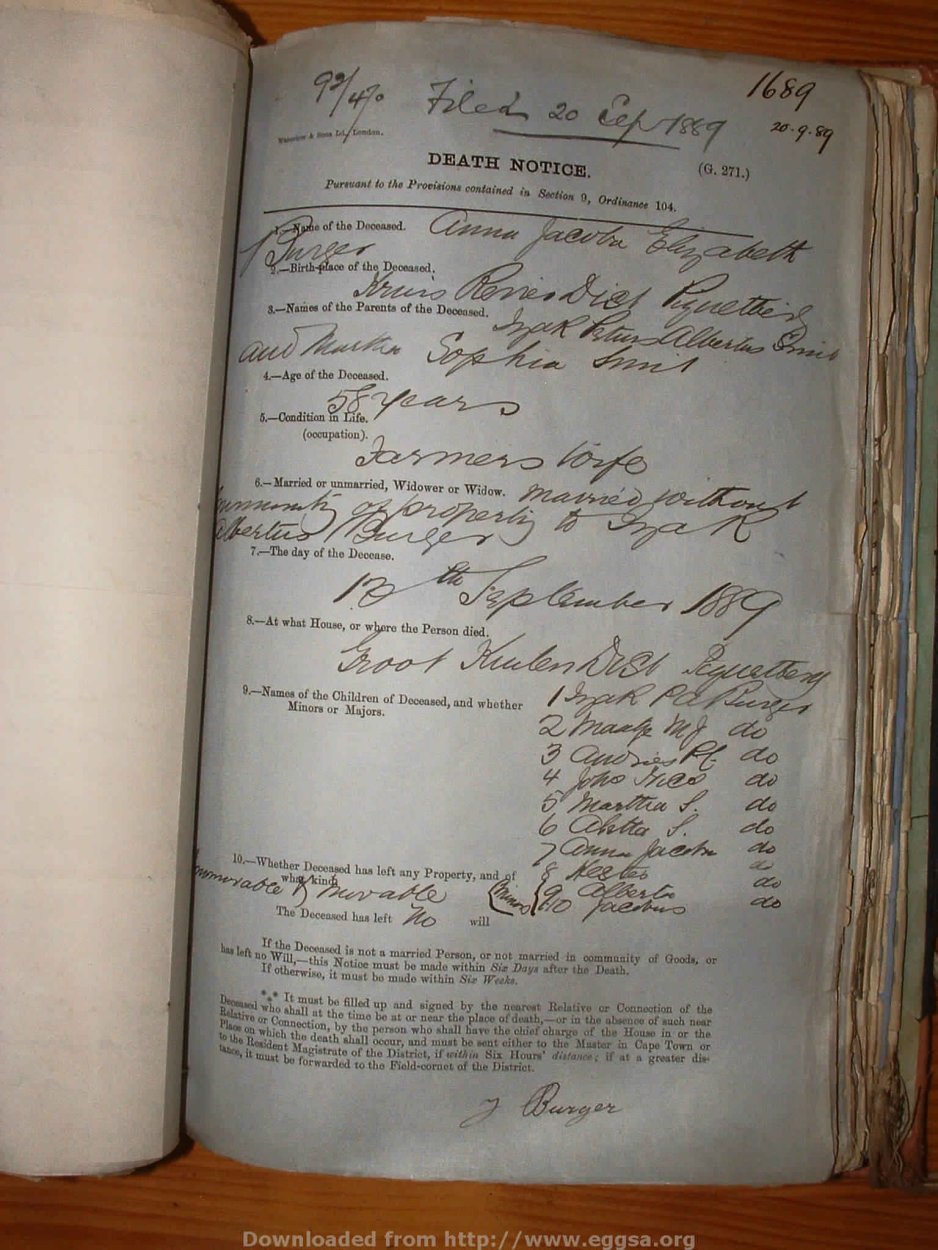 92/470 Filed 20 Sep 1889 1689
20-9-89
Waterlow & Sons Ld., London.
DEATH NOTICE. (G. 271.)
Pursuant to the Provisions contained in Section 9, Ordinance 104.
1.—Name of the Deceased. Anna Jacoba Elizabeth
Burger
2.—Birth-place of the Deceased.
Kruis Revier Dist Piquetberg
3.—Names of the Parents of the Deceased. Izak Petrus Albertus Smit
and Martha Sophia Smit
4.—Age of the Deceased.
58 years
5.—Condition in Life.
(occupation).
Farmers wife
6.—Married or unmarried, Widower or Widow. married without
community of property to Izak
Albertus Burger
7.—The day of the Decease.
th September 1889
8.—At what House, or where the Person died.
Groot Kuilen Dist Piquetberg
9.—Names of the Children of Deceased, and whether
Minors or Majors.
1 Izak P A Burger
2 M J do
3 Andries do
4 Johs Nico do
5 Martha S. do
6 Abtha S. do
7 Anna Jacoba do
8 do
9 Alberta do
10 Jacobus do
(minors)
10.—Whether Deceased has left any Property, and of
what kind.
Immovable & movable
The Deceased has left No will
If the Deceased is not a married Person, or not married in community of Goods, or
has left no Will,—this Notice must be made within Six Days after the Death.
If otherwise, it must be made within Six Weeks.
*** It must be filled up and signed by the nearest Relative or Connection of the
Deceased who shall at the time be at or near the place of death,—or in the absence of such near
Relative or Connection, by the person who shall have the chief charge of the House in or the
Place on which the death shall occur, and must be sent either to the Master in Cape Town or
to the Resident Magistrate of the District, if within Six Hours' distance; if at a greater dis-
tance, it must be forwarded to the Field-cornet of the District.
J Burger
Downloaded from http://www.eggsa.org